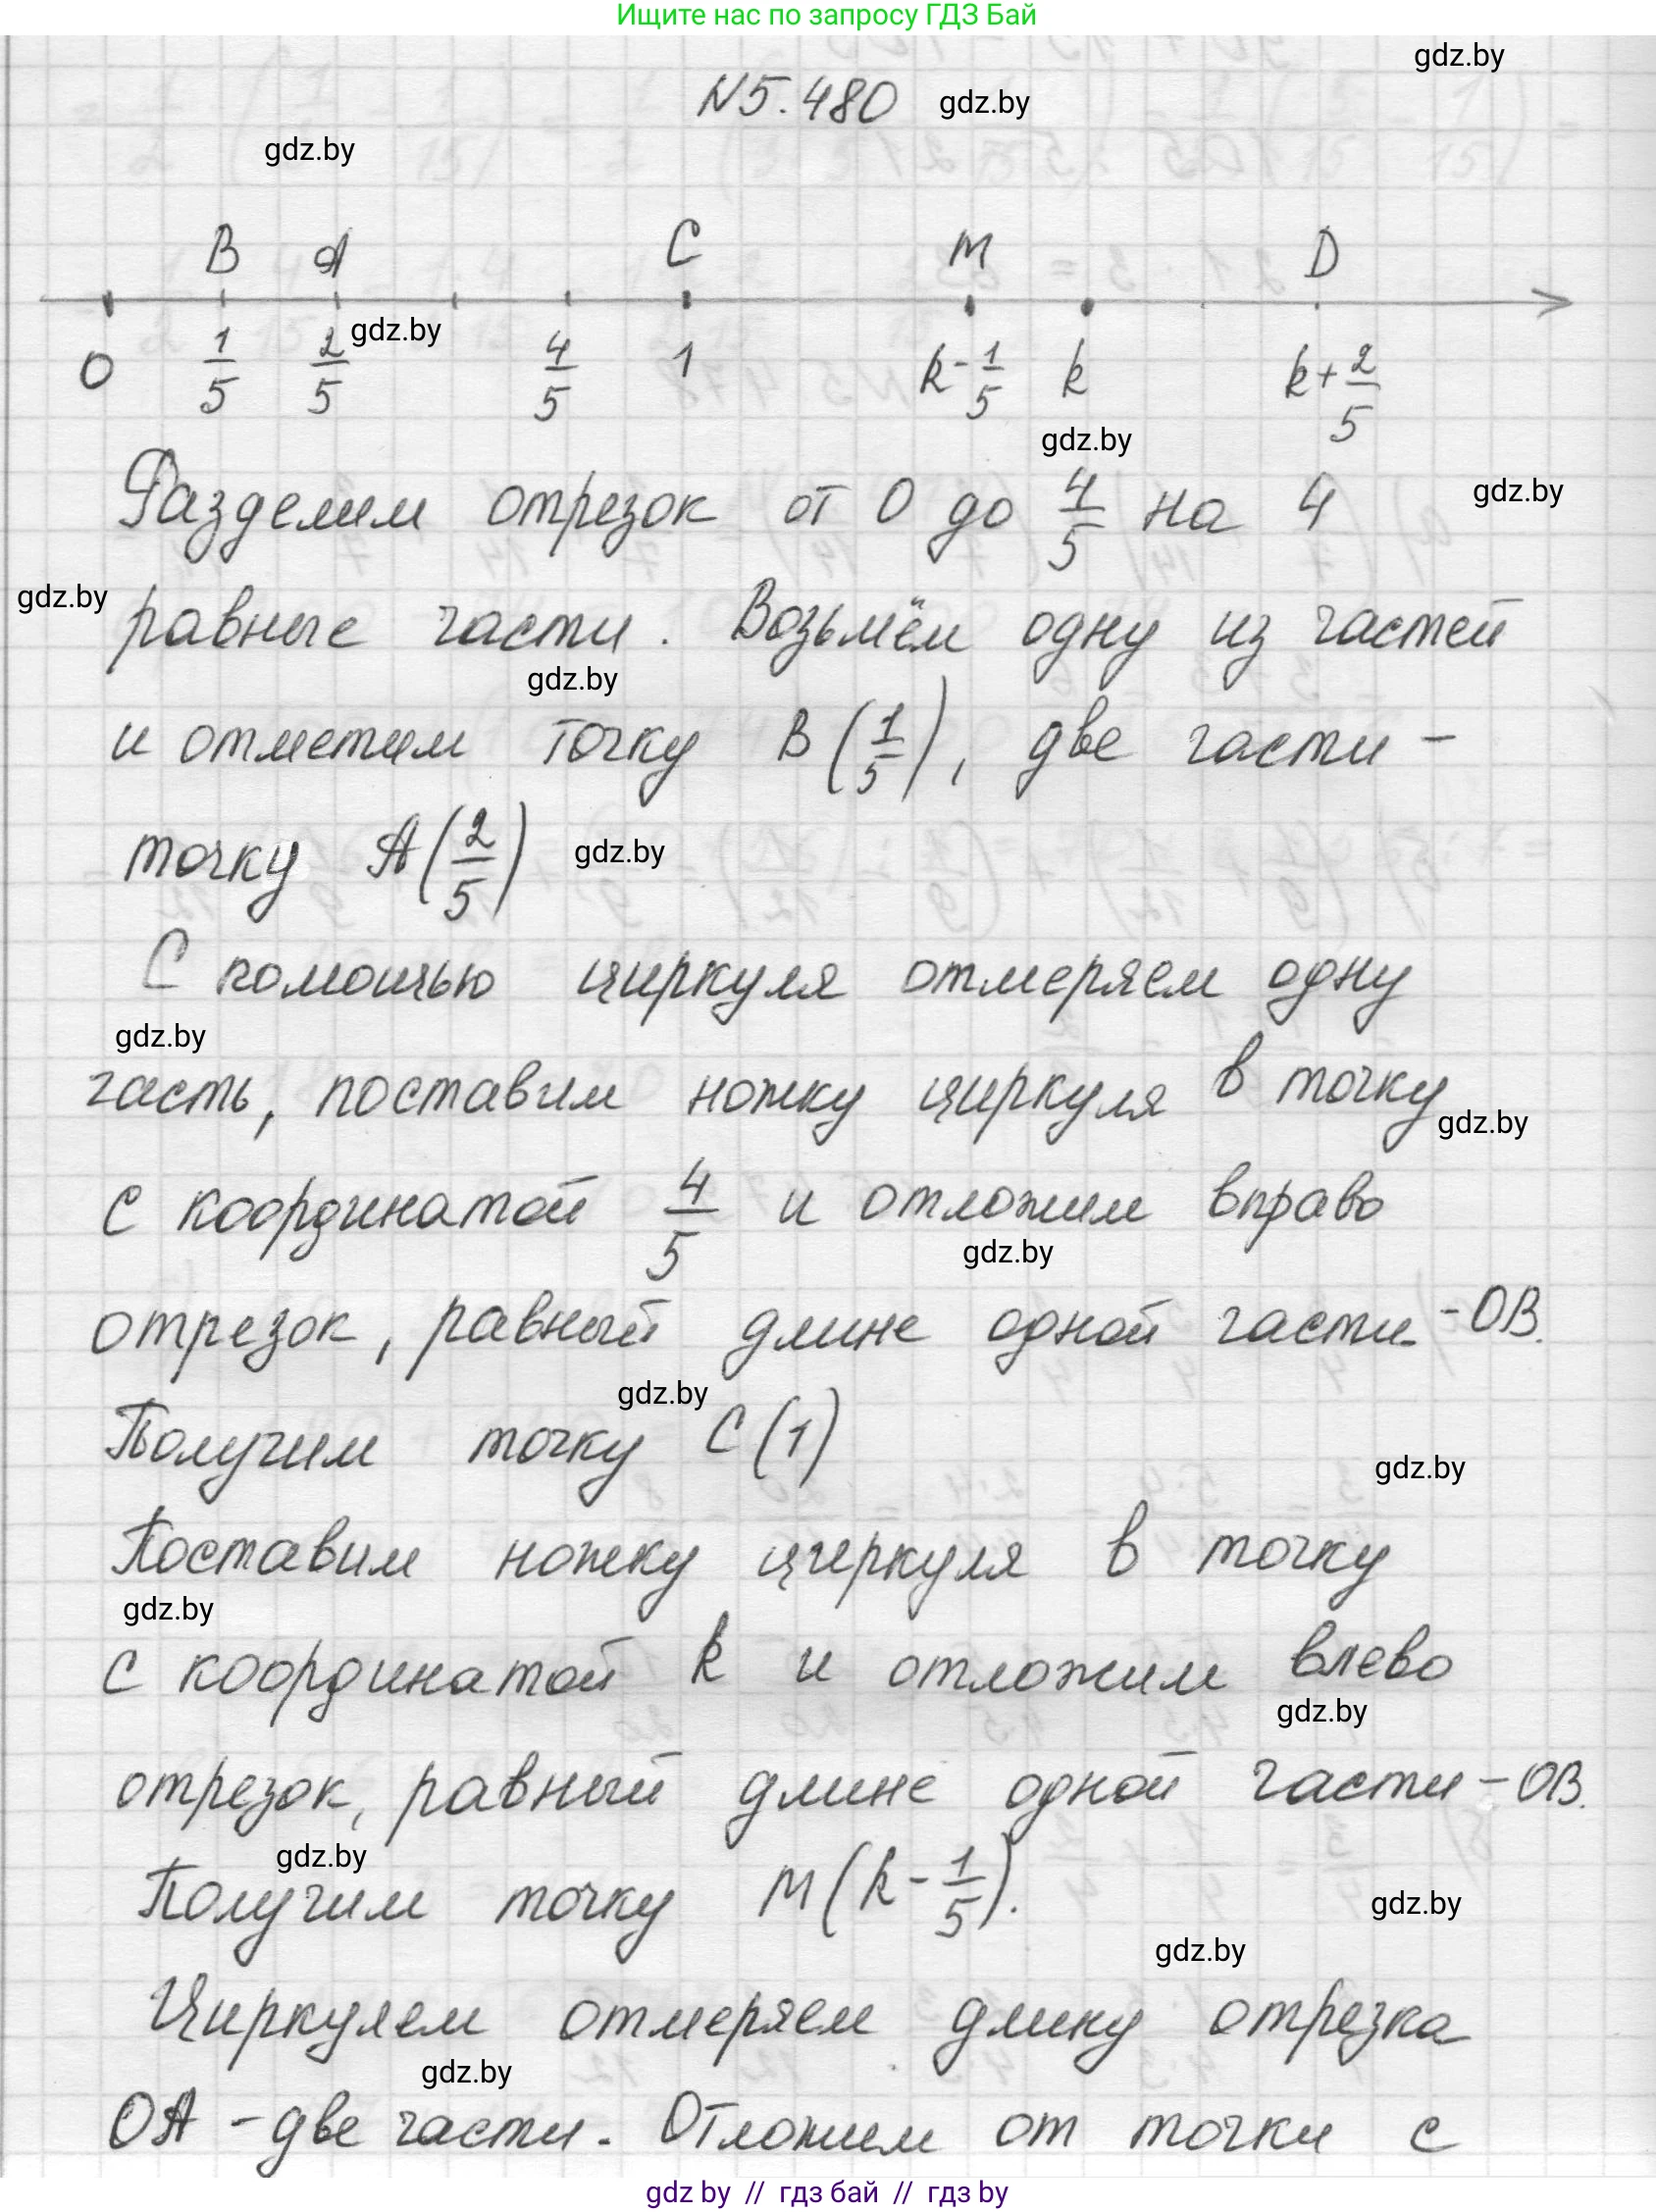 Ищите нас по запросу ГДЗ Бай
gdz.by
N5.480 gdz.by
gdz.by
B A C M D
gdz.by
0 1/5 2/5 4/5 1 k-1/5 k k+2/5
gdz.by
Разделим отрезок от 0 до 4/5 на 4
gdz.by
gdz.by
равные части. Возьмём одну из частей
gdz.by
и отметим точку B(1/5), две части -
точку A(2/5) gdz.by
С помощью циркуля отмеряем одну
gdz.by
часть, поставим ножку циркуля в точку
gdz.by
с координатой 4/5 и отложим вправо
gdz.by
отрезок, равный длине одной части - OB.
gdz.by
Получим точку C(1)
gdz.by
Поставим ножку циркуля в точку
gdz.by
с координатой k и отложим влево
gdz.by
отрезок, равный длине одной части - OB.
gdz.by
Получим точку M(k-1/5).
gdz.by
gdz.by
Циркулем отмеряем длину отрезка
gdz.by
OA - две части. Отложим от точки с
gdz by // гдз бай // гдз by